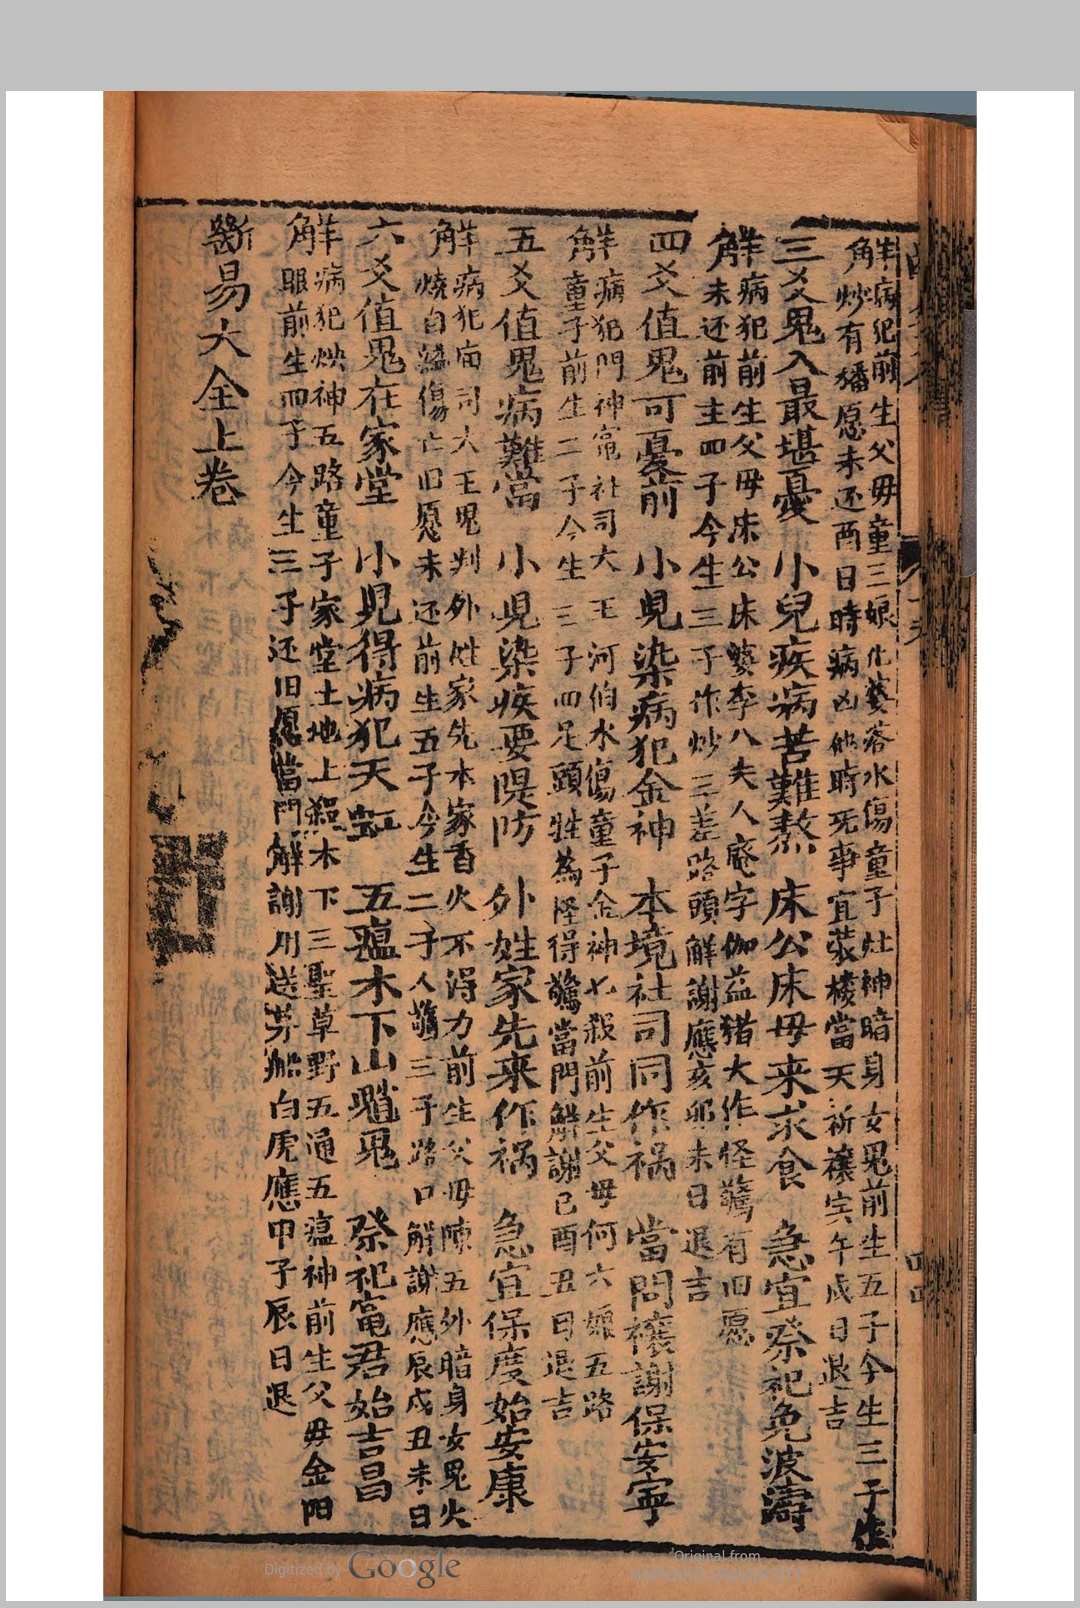 解病犯前生父母童三娘化婆蓉水傷童子灶神暗身女鬼前生五子今生三子作
炒有猪愿未还酉日時病凶他時死事宜當天祈禳寅午戌日退吉
三爻鬼入最堪憂 小兒疾病苦難熬 床公床母来求食 急宜祭祀免波濤
解病犯前生父母床公床婆李八夫人庵字伽益猪犬作怪驚有旧愿
未还前主四子今生三子作炒三差路頭解謝應亥卯未日退吉
四爻值鬼可憂前 小兒染病犯金神 本境社司同作禍 當問禳謝保安寧
解病犯門神竃社司大王河伯水傷童子金神七殺前生父母何六娘五路
童子前生二子今生三子四足頭牲為怪得驚當門解謝巳酉丑日退吉
五爻值鬼病難當 小兒染疾要隄防 外姓家先来作禍 急宜保度始安康
解病犯庙司大王鬼判外姓家先本家香火不得力前生父母陳五外暗身女鬼火
燒自縊傷亡旧愿未还前生五子今生二子人驚三子路口解謝應辰戌丑未日
六爻值鬼在家堂 小兒得病犯天虹 五瘟木下山魈鬼 祭祀竃君始吉昌
解病犯殃神五路童子家堂土地上殺木下三聖草野五通五瘟神前生父母金阳
眼前生四子今生三子还旧愿當門解謝用送茅船白虎應甲子辰日退
斷易大全上卷
Digitized by Google
Original from